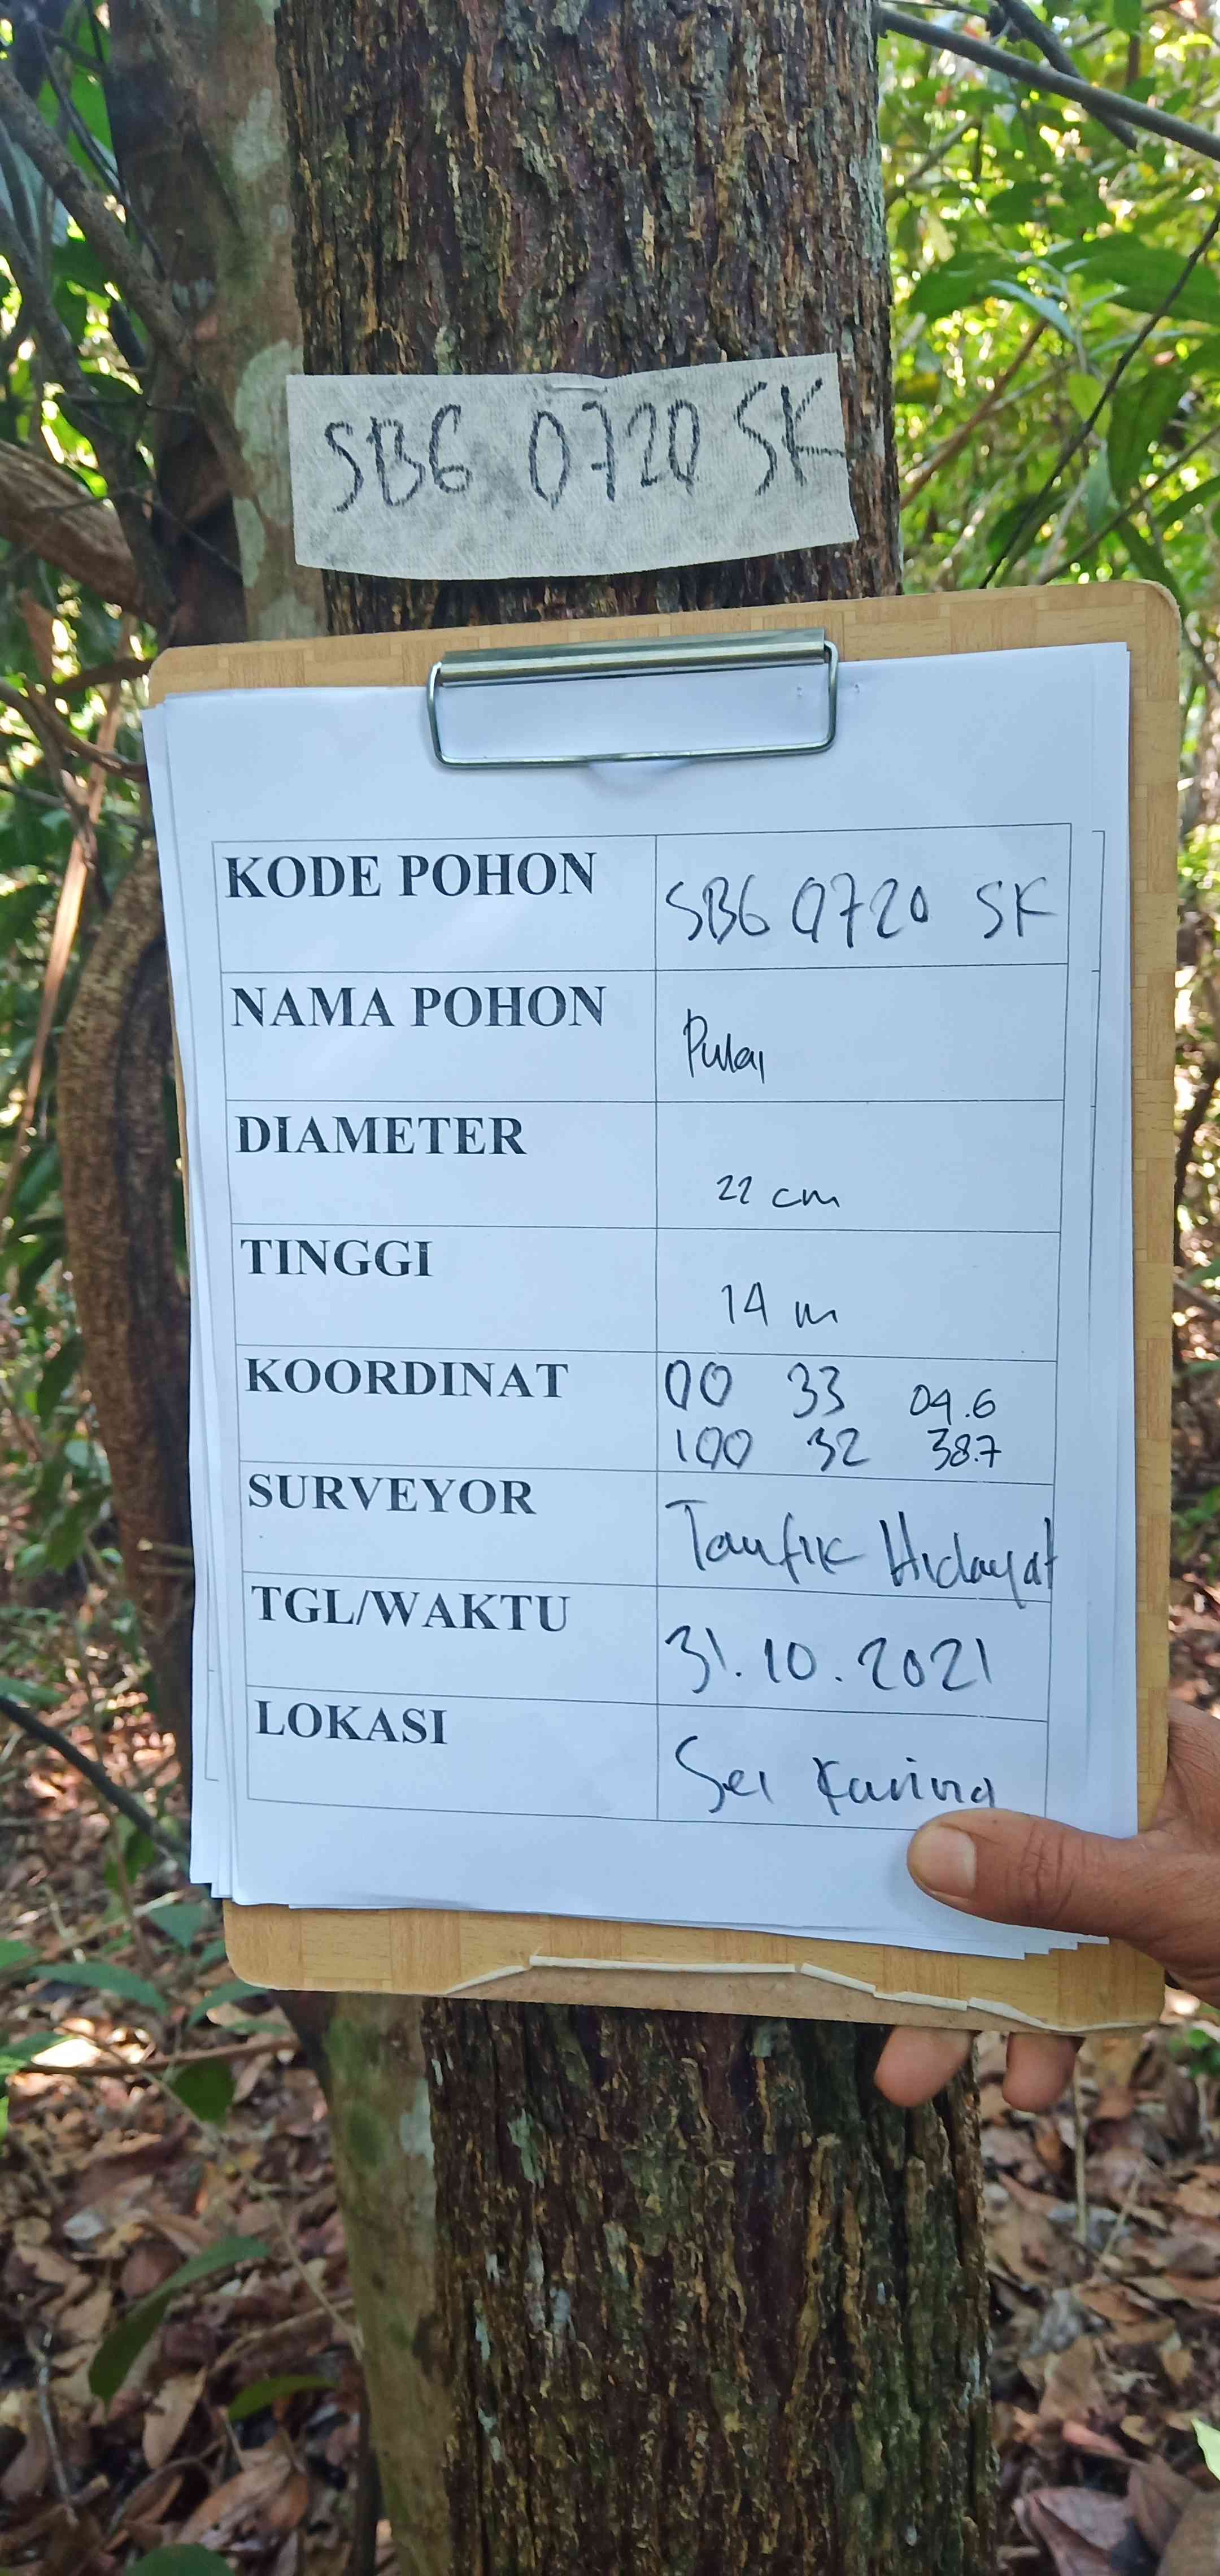 SBG 0720 SK
KODE POHON SBG 0720 SK
NAMA POHON Pulai
DIAMETER 22 cm
TINGGI 14 m
KOORDINAT 00 33 04.6
100 32 38.7
SURVEYOR Taufik Hidayat
TGL/WAKTU 31.10.2021
LOKASI Sei Karina